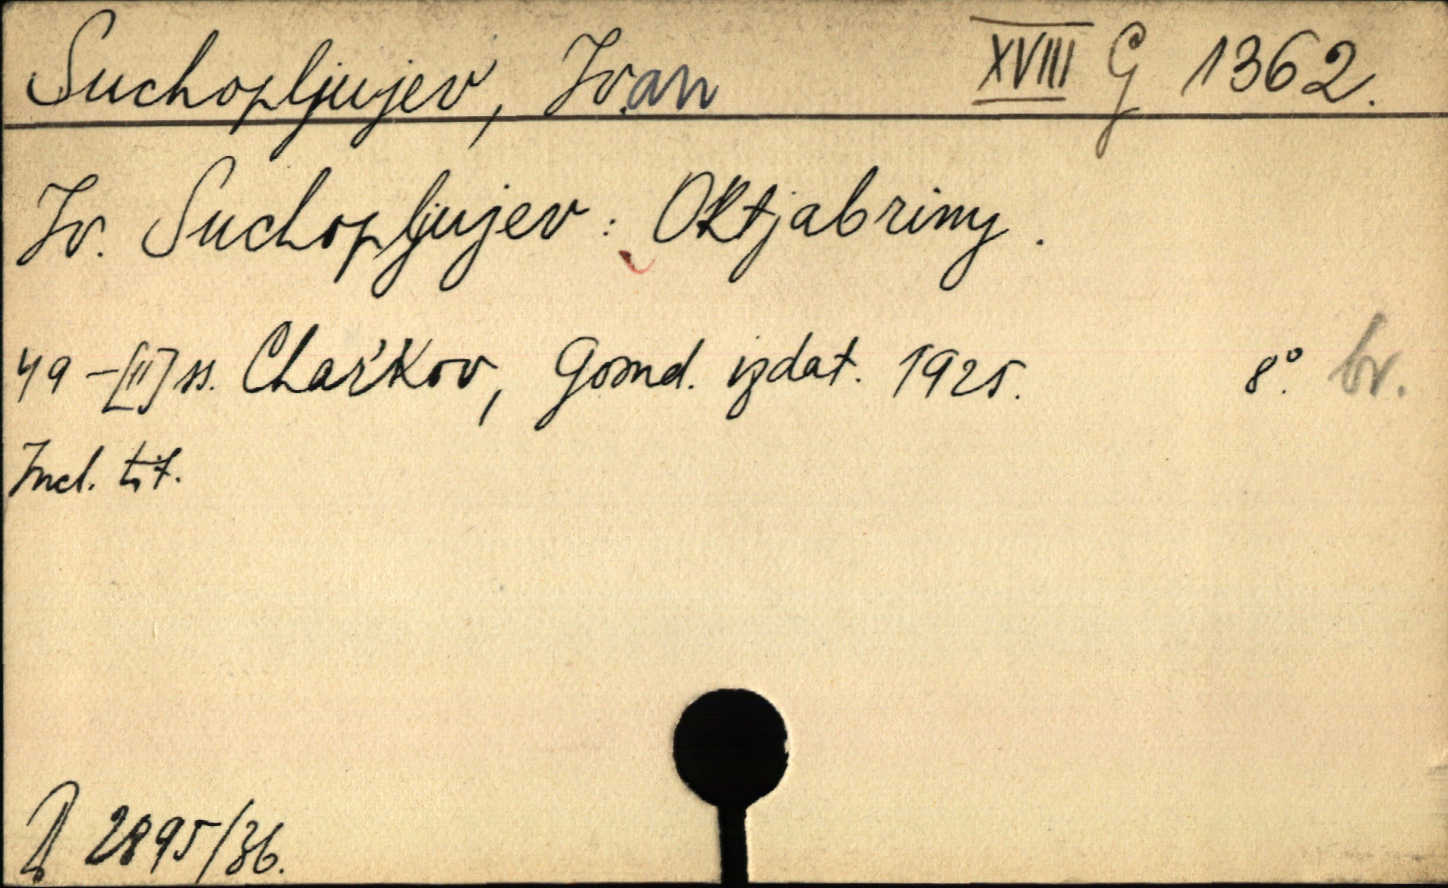 Suchopljujev, Ivan XVIII G 1362.
Iv. Suchopljujev: Oktjabriny.
49-[II] ss. Char'kov, Gosud. izdat. 1925. 8°. br.
Incl. tit.
2895/36.